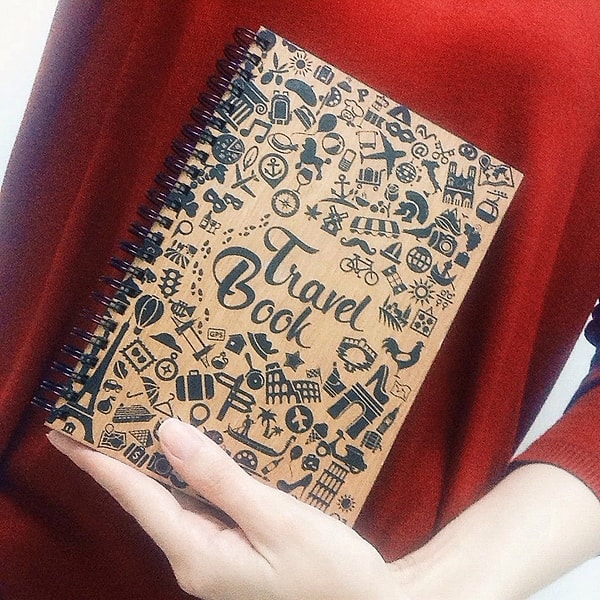 Travel
Book
GPS